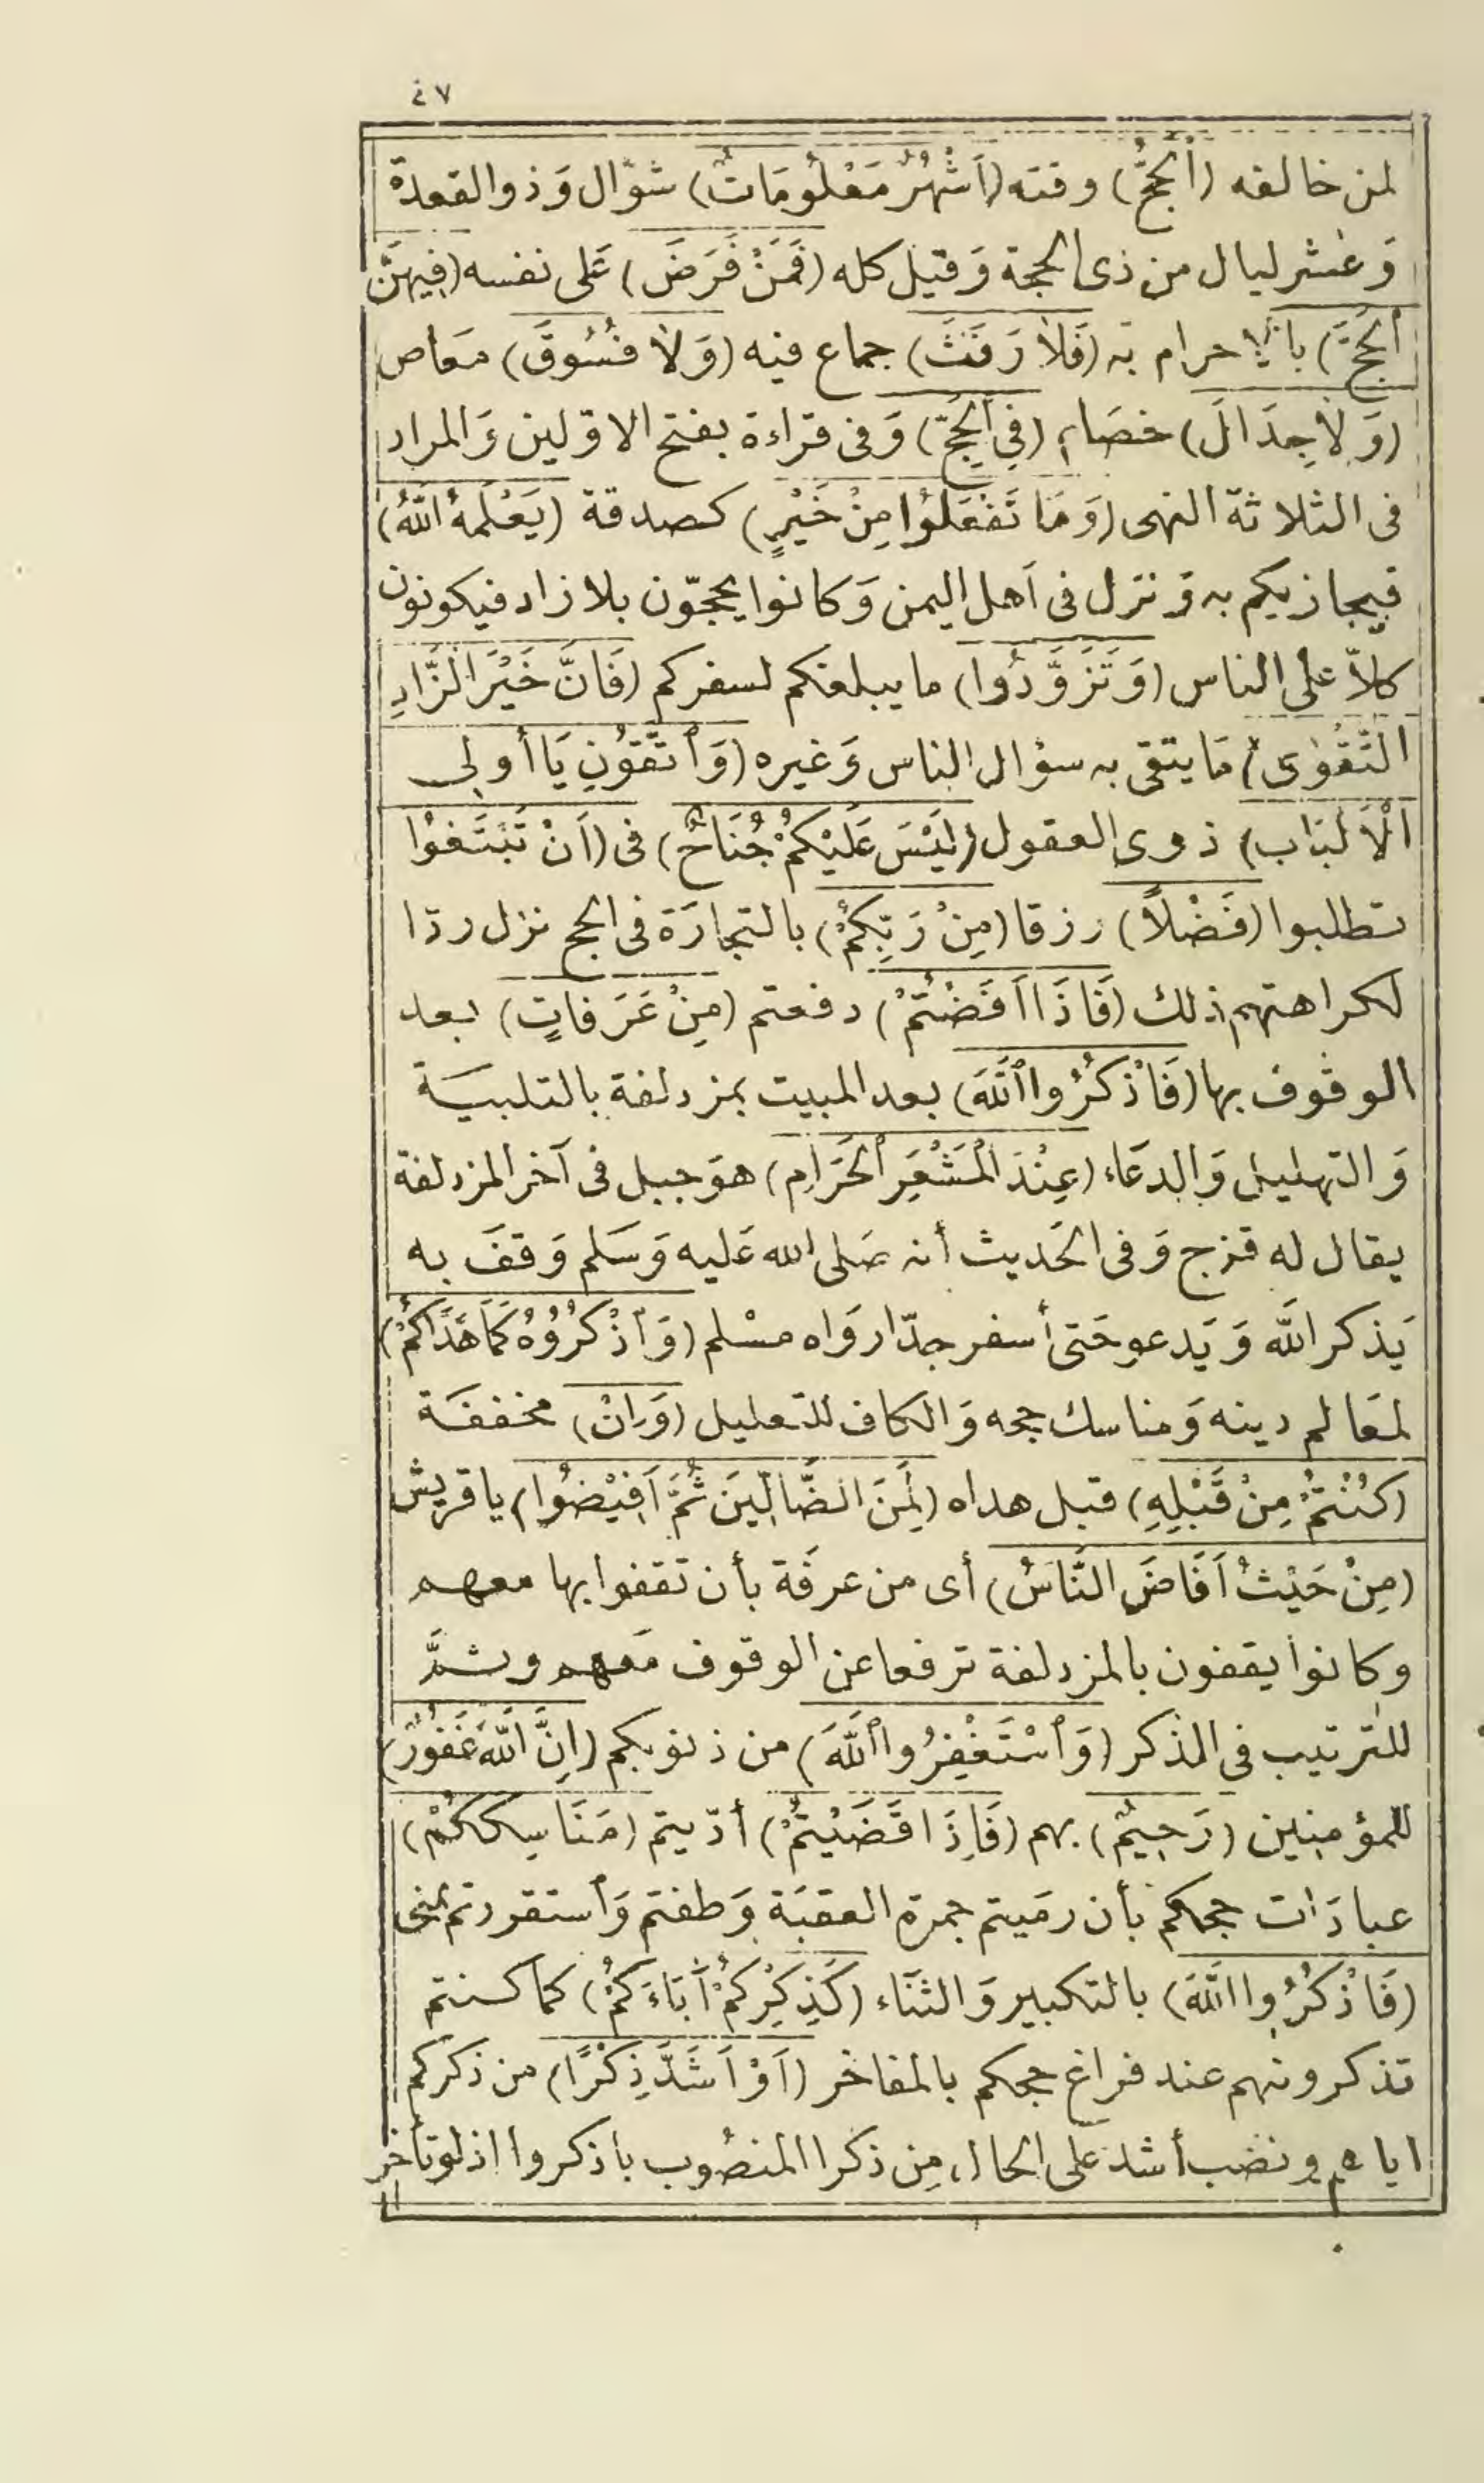 ٤٧
لمن خالفه (اَلْحَجُّ) وقته (اَشْهُرٌ مَعْلُومَاتٌ) شوّال وَذو القعدة
وَعشر ليال من ذى الحجة وَقيل كله (فَمَنْ فَرَضَ) عَلى نفسه (فِيهِنَّ
اَلْحَجَّ) بالاحرام به (فَلاَ رَفَثَ) جماع فيه (وَلاَ فُسُوقَ) مَعاص
(وَلاَ جِدَالَ) خصَام (فِي اَلْحَجِّ) وَفى قراءة بفتح الاوّلين وَالمراد
فى الثلاثة النهى (وَمَا تَفْعَلُوا مِنْ خَيْرٍ) كصدقة (يَعْلَمْهُ اَللَّهُ)
فيجازيكم به وَنزل فى اَهل اليمن وَكانوا يحجّون بلا زاد فيكونون
كلاّ على الناس (وَتَزَوَّدُوا) ما يبلغكم لسفركم (فَاِنَّ خَيْرَ الزَّادِ
التَّقْوٰى) مَا يتقى به سؤال الناس وَغيره (وَاَتَّقُونِ يَا أُولِى
اَلْاَلْبَابِ) ذوى العقول (لَيْسَ عَلَيْكُمْ جُنَاحٌ) فى (اَنْ تَبْتَغُوْا
تطلبوا (فَضْلاً) رزقا (مِنْ رَبِّكُمْ) بالتجارَة فى الحج نزل ردّا
لكراهتهم ذلك (فَاِذَا اَفَضْتُمْ) دفعتم (مِنْ عَرَفَاتٍ) بعد
الوقوف بها (فَاذْكُرُوا اَللَّهَ) بعد المبيت بمزدلفة بالتلبيَة
وَالتهليل وَالدعَاء (عِنْدَ الْمَشْعَرِ اَلْحَرَامِ) هوَ جبل فى آخر المزدلفة
يقال له قزح وَفى الحَديث أنه صَلى الله عَليه وَسَلم وَقفَ به
يَذكر اللَّه وَيَدعو حَتى أسفر جدّا روَاه مسْلم (وَاَذْكُرُوْهُ كَمَا هَدَاكُمْ)
لمعَالم دينه وَمناسك حجه وَالكاف للتعليل (وَاِنْ) مخففَة
(كُنْتُمْ مِنْ قَبْلِهِ) قبل هداه (لَمِنَ الضَّالِّينَ ثُمَّ اَفِيْضُوا) يا قريش
(مِنْ حَيْثُ اَفَاضَ النَّاسُ) أى من عرفَة بأن تقفوا بها معهم
وكانوا يقفون بالمزدلفة ترفعا عن الوقوف مَعهم وثمَّ
للترتيب فى الذكر (وَاَسْتَغْفِرُوا اَللَّهَ) من ذنوبكم (اِنَّ اَللَّهَ غَفُوْرٌ)
للمؤمنين (رَحِيمٌ) بهم (فَاِذَا قَضَيْتُمْ) أدّيتم (مَنَاسِكَكُمْ)
عبادَات حجكم بأن رمَيتم جمرة العقبَة وَطفتم وَاستقررتم بمنى
(فَاذْكُرُوا اللَّهَ) بالتكبير وَالثنَاء (كَذِكْرِكُمْ أَبَاءَكُمْ) كما كنتم
تذكرونهم عند فراغ حجكم بالمفاخر (اَوْ اَشَدَّ ذِكْرًا) من ذكركم
اياهم ونصب أشد على الحال من ذكرا المنصُوب باذكروا اذ لو تأخر